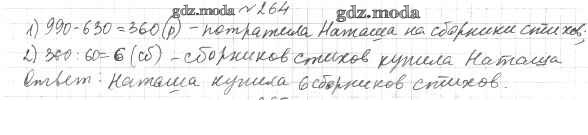 gdz.moda № 264 gdz.moda
1) 990-630=360(р) - потратила Наташа на сборники стихов;
2) 360:60=6 (сб) - сборников стихов купила Наташа
Ответ: Наташа купила 6 сборников стихов.